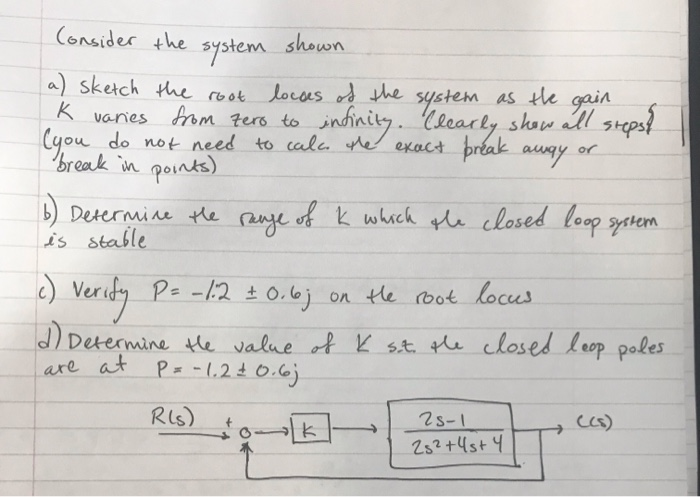 Consider the system shown
a) sketch the root locues of the system as the gain
K varies from zero to infinity. Clearly show all steps!
(you do not need to calc. the exact break away or
break in points)
b) Determine the range of K which the closed loop system
is stable
c) Verify P = -1.2 ± 0.6j on the root locus
d) Determine the value of K s.t. the closed loop poles
are at P = -1.2 ± 0.6j
R(s) + K 2s-1 C(s)
2s²+4s+4